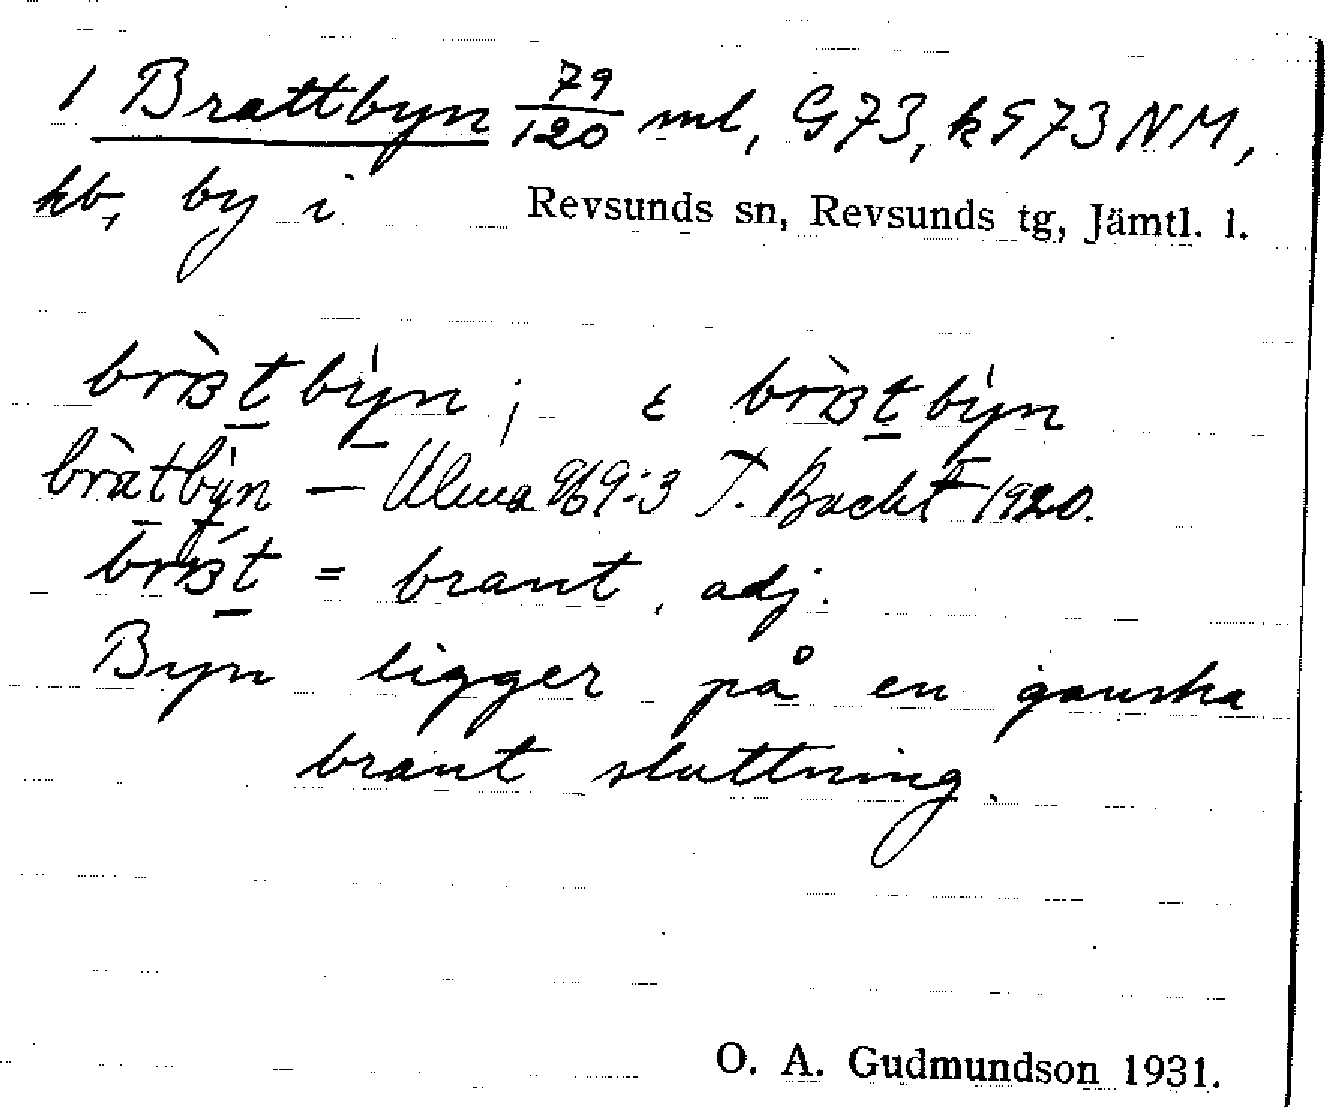 1 Brattbyn 79/120 ml, G73, k G73 NM,
kb, by i Revsunds sn, Revsunds tg, Jämtl. l.
bràt bẏn ; ɛ bràt bẏn
bràtbyn — Ulma 969:3 T. Backf 1920.
brát = brant, adj.
Byn ligger på en ganska
brant sluttning.
O. A. Gudmundson 1931.